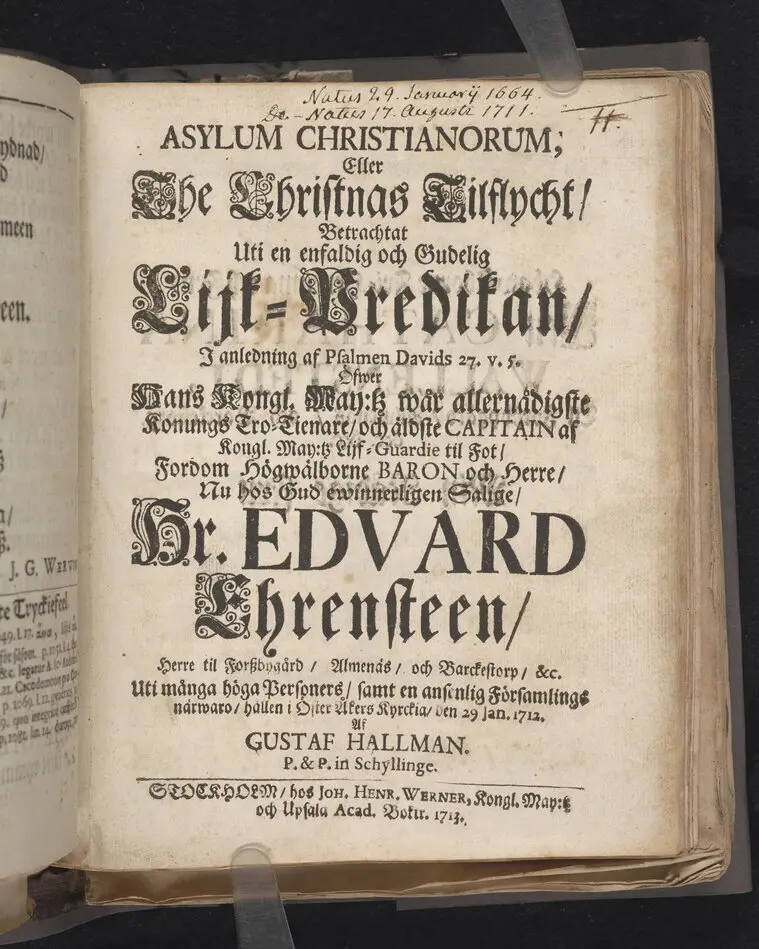 ydnad/
meen
een.
J. G. WERV
te Tryckiefeel
Natus 29. Januarij 1664.
De. - Natus 17. Augusti 1711.
ASYLUM CHRISTIANORUM;
Eller
The Christnas Tilflycht/
Betrachtat
Uti en enfaldig och Gudelig
Lijk-Predikan/
I anledning af Psalmen Davids 27. v. 5.
Öfwer
Hans Kongl. May:tz wår allernådigste
Konungs Tro-Tienare/ och äldste CAPITAIN af
Kongl. May:tz Lijf-Guardie til Fot/
Fordom Högwälborne BARON och Herre/
Nu hos Gud ewinnerligen Salige/
Hr. EDVARD
Ehrensteen/
Herre til Forßbygård / Almenäs/ och Barckestorp/ &c.
Uti många höga Personers/ samt en ansenlig Församlings
närwaro/ hållen i Öster Åkers Kyrckia/ den 29 Jan. 1712.
Af
GUSTAF HALLMAN.
P. & P. in Schyllinge.
STOCKHOLM/ hos JOH. HENR. WERNER, Kongl. May:tz
och Upsala Acad. Boktr. 1713.